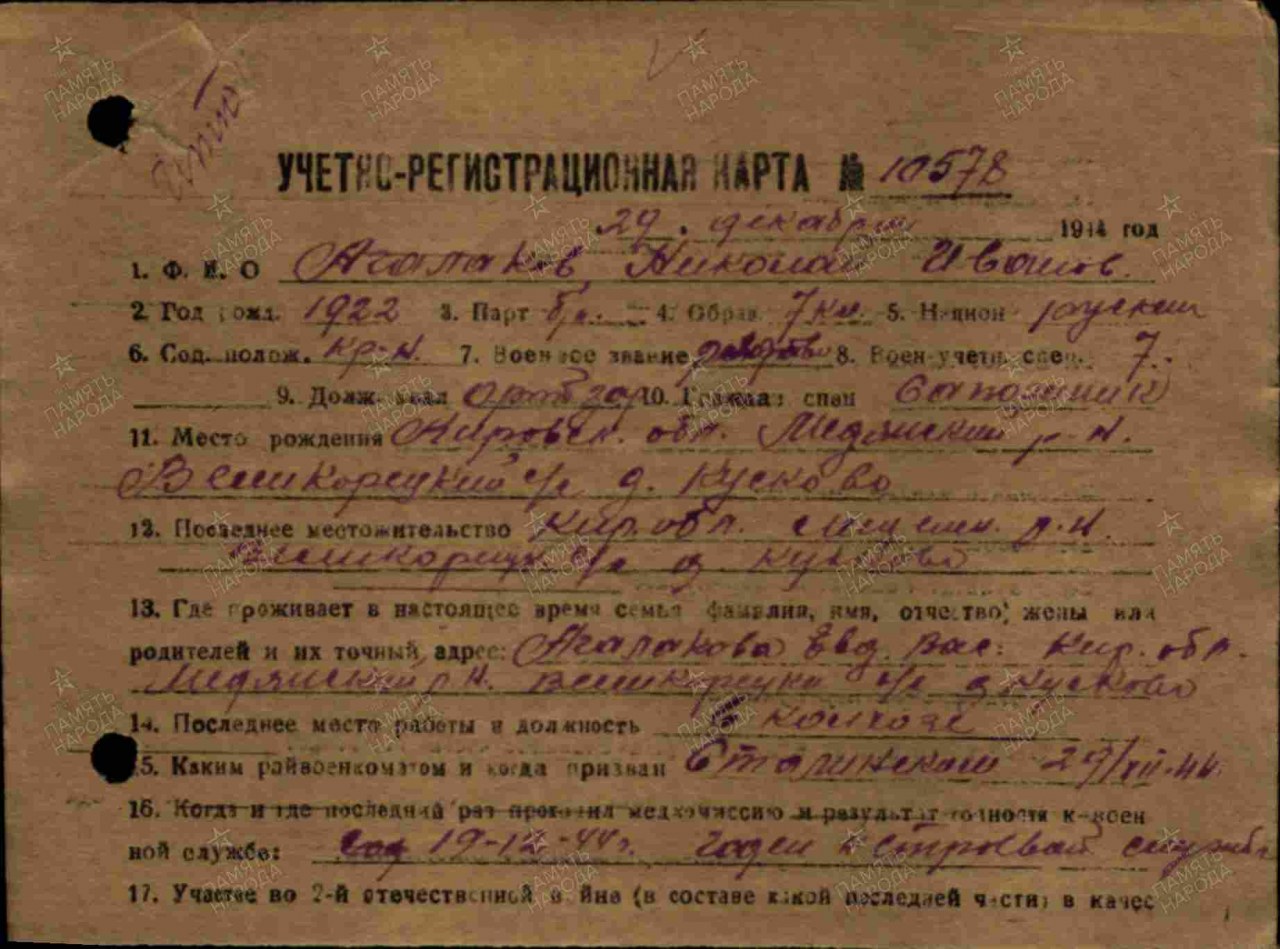 УЧЕТНО-РЕГИСТРАЦИОННАЯ КАРТА № 10578
29. декабря 1944 год
1. Ф. И. О Агалаков Николай Иванов.
2. Год рожд. 1922 3. Парт б/п. 4. Образ. 7 кл. 5. Национ руский
6. Соц. полож. кр-н. 7. Военное звание рядовой 8. Воен-учетн. спец. 7.
9. Долж. 10. Граждан спец Сапожник
11. Место рождения Кировск. обл. Медянский р-н.
Вешкорецкий с/с д. Кусково
12. Последнее местожительство Кир. обл. р-н.
с/с д Кусково
13. Где проживает в настоящее время семья фамилия, имя, отчество, жены или
родителей и их точный адрес: Агалакова Евд. Вас. Кир. обл.
Медянский р-н. с/с д Кусково
14. Последнее место работы и должность В колхозе
15. Каким райвоенкоматом и когда призван Сталинским 29/XII-44.
16. Когда и где последний раз проходил медкомиссию и результат годности к воен
ной службе: 19-12-44г. годен к строевой службе
17. Участие во 2-й отечественной войне (в составе какой последней части) в качес
ПАМЯТЬ НАРОДА